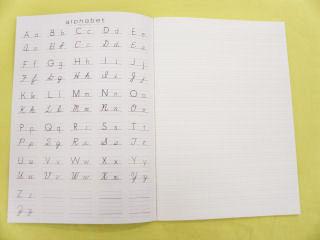 alphabet
A a B b C c D d E e
A a B b C c D d E e
F f G g H h I i J j
F f G g H h I i J j
K k L l M m N n O o
K k L l M m N n O o
P p Q q R r S s T t
P p Q q R r S s T t
U u V v W w X x Y y
U u V v W w X x Y y
Z z
Z z